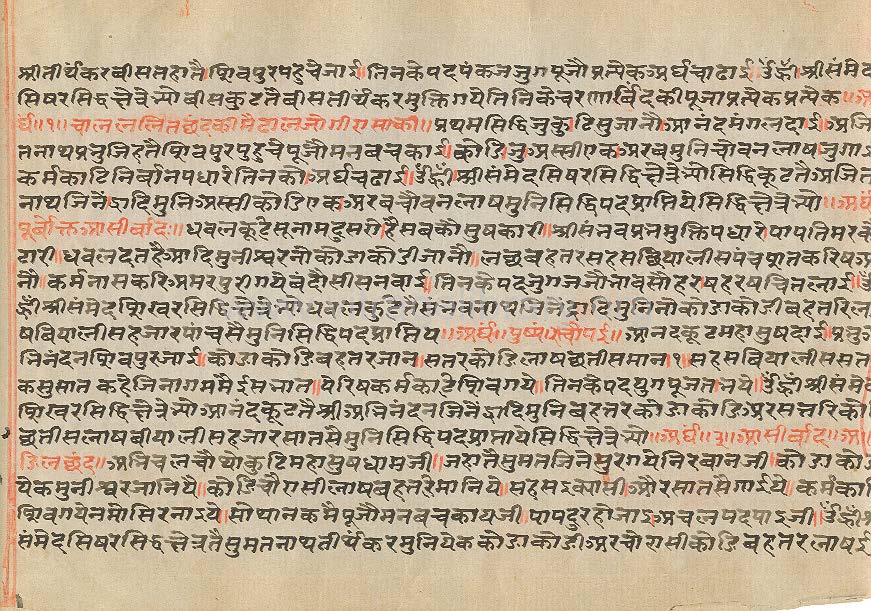 श्रीतीर्थंकरवीसतहातै॥शिवपुरपहुचेजाई॥तिनकेपदपंकजजुगपूजौप्रत्येकअर्घचढाई॥ॐह्रीं॥श्रीसंमेद
सिषरसिद्धक्षेत्रेभ्योबीसकुटतैबीसतीर्थंकरमुक्तिगयेतिनिकेचरणारविंदकीपूजाप्रत्येकप्रत्येक॥अ
र्घं॥१॥चाललनितछंदकीमैढालजोगीरासाकी॥प्रथमसिद्धिजुकुटिसुजानौ॥आनंदमंगलदाई॥अजि
तनाथप्रभुजिहतैशिवपुरपुहुचेपूजौमनबचकाई॥कोडिजुअस्सीएकअरबमुनिचोवनलाषजुगाई
कर्मकाटिनिर्वानपधारेतिनको॥अर्घचढाई॥ॐह्रीं॥श्रीसंमेदसिषरसिद्धिक्षेत्रेभ्योसिद्धिकूटतैअजित
नाथजिनेंद्रादिमुनिअस्सीकोडिएकअरबचोवनलाषमुनिसिद्धिपदप्राप्तियेसिद्धिक्षेत्रेभ्यो॥अर्घं
पूर्वोक्तआसीर्वादः॥धवलकूटैसूनामदुसरोहैसबकौसुषकारी॥श्रीसंनवप्रनमुक्तिपधारेपापतिमरको
टारी॥धवलदतहैआदिमुनीश्वरनोकोडाकोडीजानौ॥लछबहतरसहसछियालीसपंचशतकरिषआ
नौ॥कर्मनासकरिअमरपुरागयेबंदौसीसनवाई॥तिनकेपदजुगजजौनावसौहरषहरषचितलाई॥ॐ
ह्रींश्रीसंमेदशिखरसिद्धिक्षेत्रे
षबियालीसहजारपांचसैमुनिसिद्धिपदप्राप्तिय॥अर्घं॥पुष्पं॥चौपई॥आनंदकूटमहासुषदाई॥प्रभुअ
निनंदनशिवपुरजाई॥कोडाकोडिबहतरजान॥सतरकोडिलाषछतीसमान॥१॥सहसबियालीससत
कसुसातकहेजिनागममैईसनात॥येरिषकर्मकाटिशिवगये॥तिनकेपदयुगपूजतनये॥ॐह्रींश्रीसंमेद
शिखरसिद्धिक्षेत्रेभ्योआनंदकूटतैश्रीअनिनंदनजिनेंद्रादिमुनिबहतरकोडाकोडिअरसत्तरिकोडि
छतीसलाषबीयालीसहजारसातसैमुनिसिद्धिपदप्राप्तायेसिद्धिक्षेत्रेभ्यो॥अर्घं॥३॥आसीर्वाद॥अ
डिलछंद॥अविचलचौथोकुटिमहासुषधामजी॥जहातैसुमतजिनेसुरगयेनिरबानजी॥कोडाकोडि
येकमुनीश्वरजानिये॥कोडिचौरासीलाषबहतरिमानिये॥सहसइक्यासीऔरसातसैगाईये॥कर्मकाटि
शिवगयेनमोसिरनाइये॥सोथानकमैपूजौमनबचकायजी॥पापदुरहोजाइअचलपदपाइजी॥ॐह्रींश्री
संमेदसिषरसिद्धक्षेत्रतैसुमतनाथतीर्थंकरमुनियेककोडाकोडीअरचोरासीकोडिबहतरलाषई